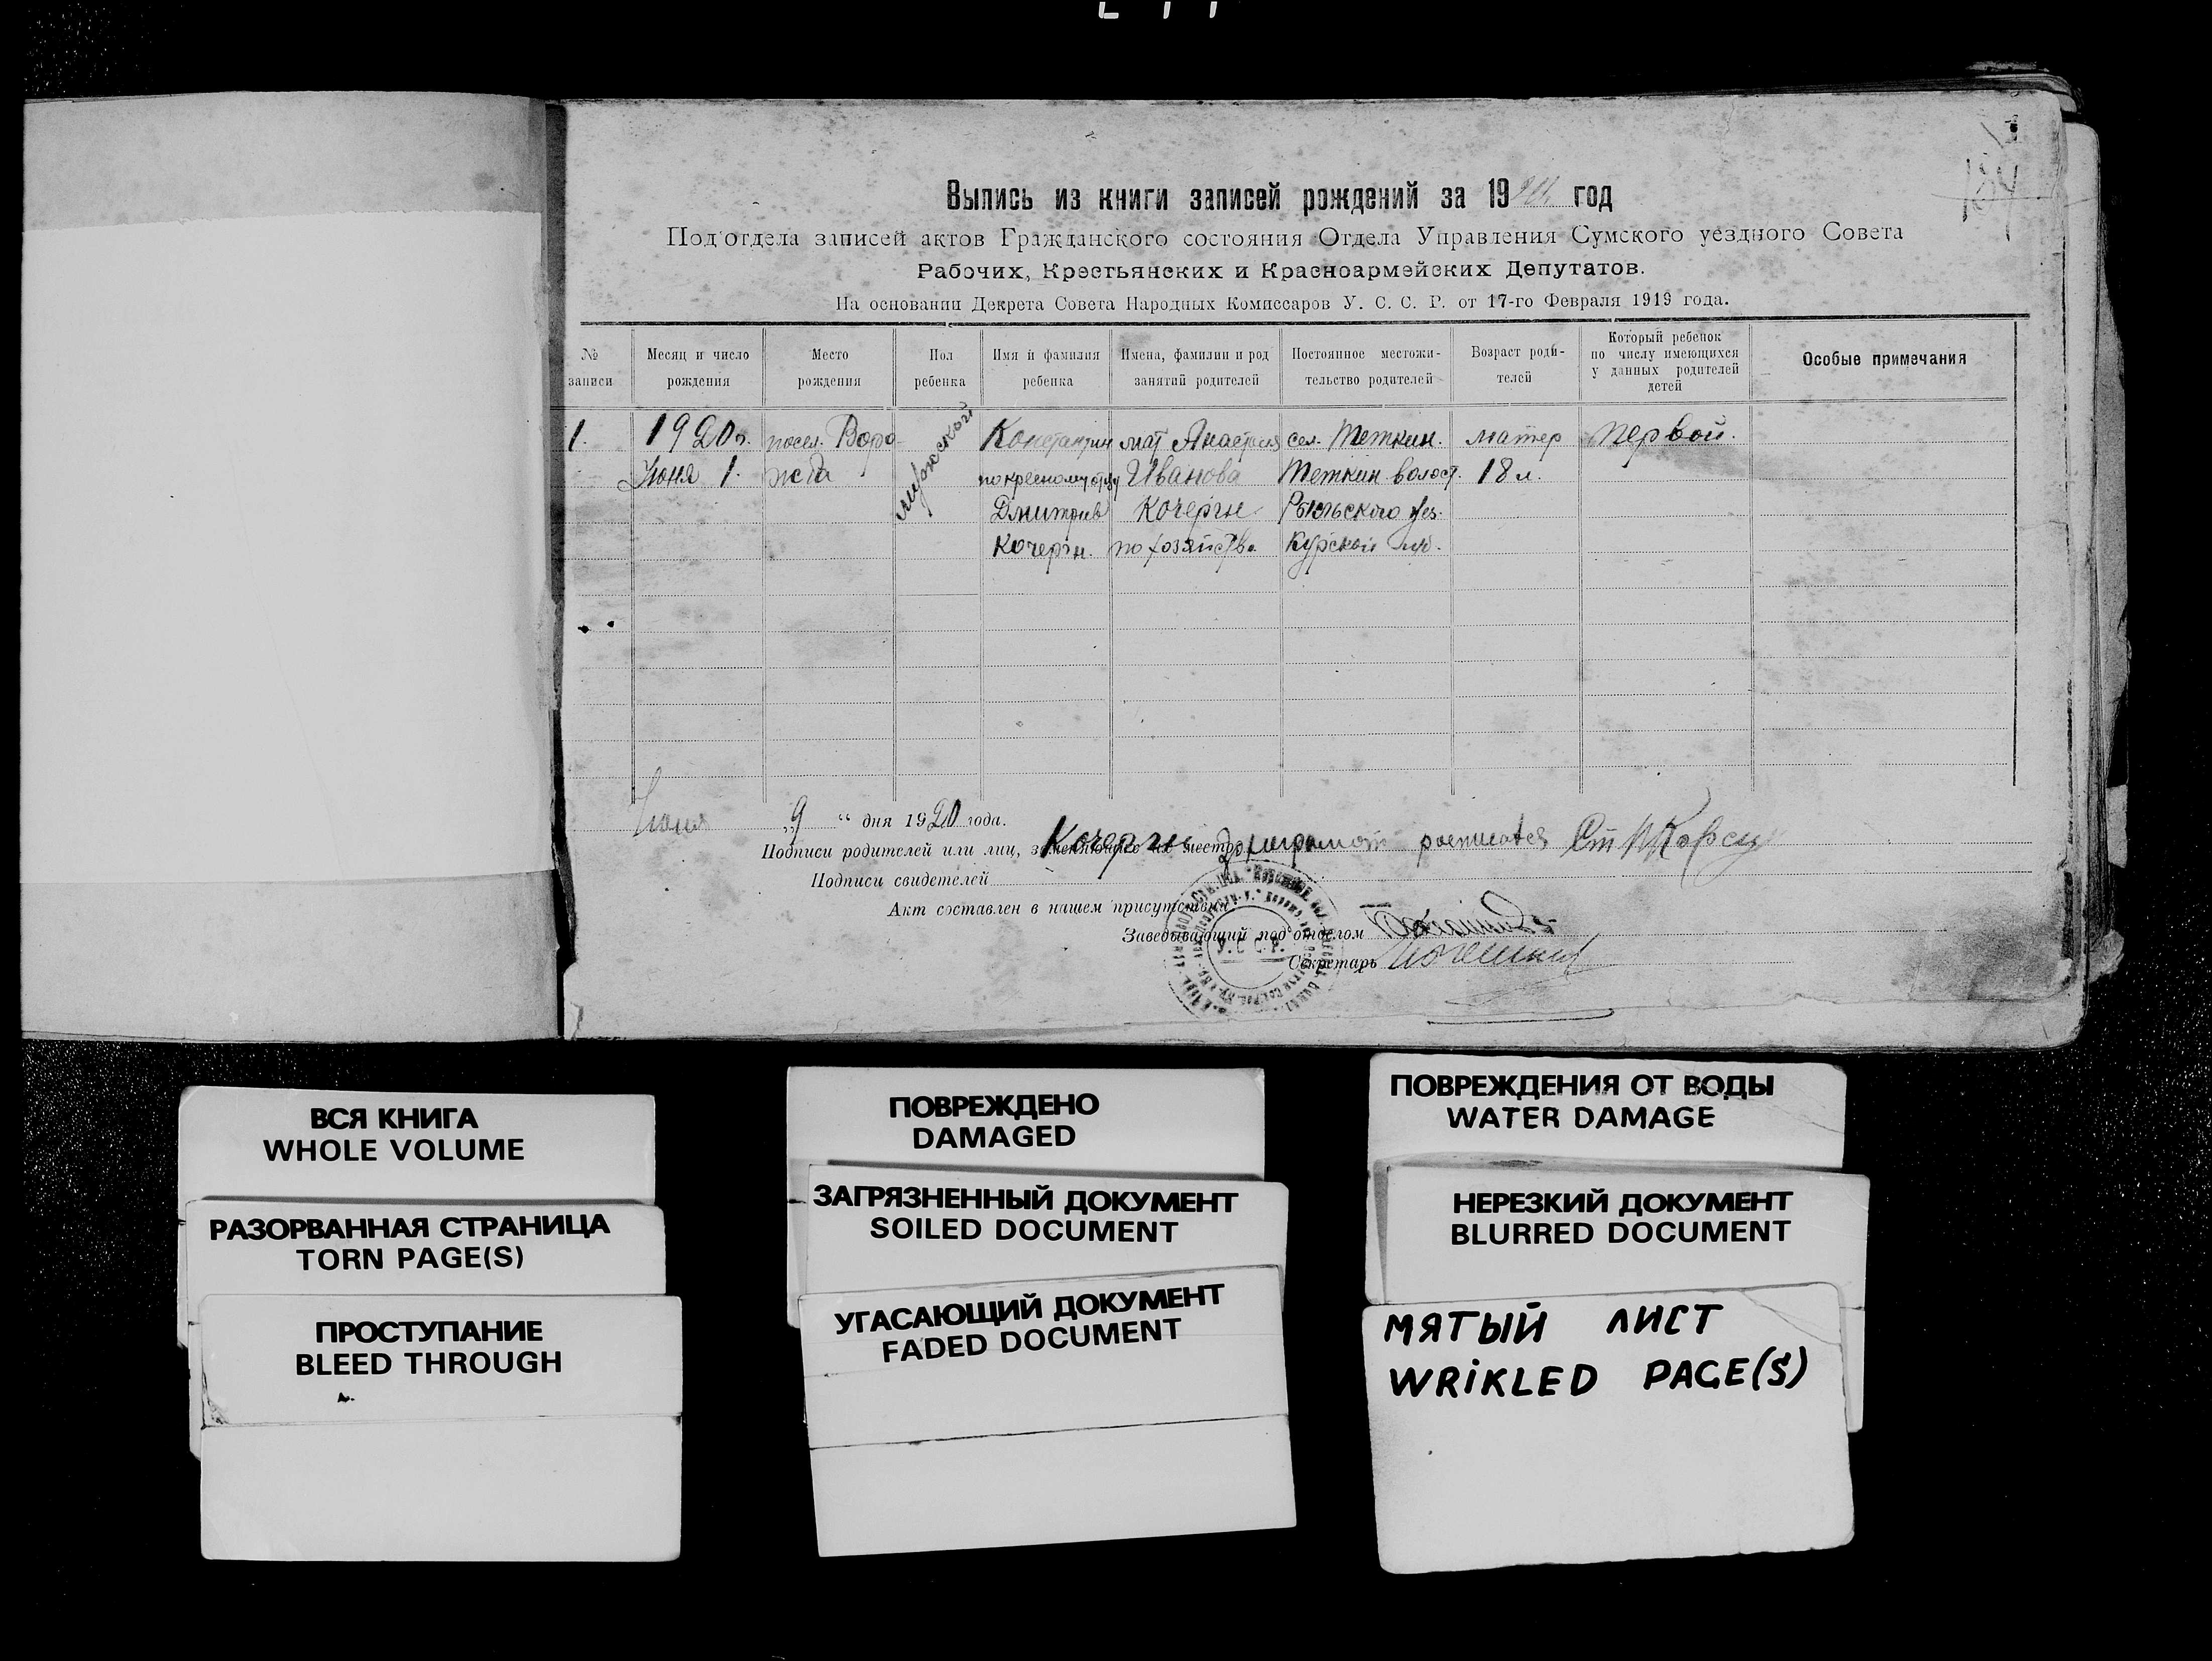 Выпись из книги записей рождений за 1920 год
Под'отдела записей актов Гражданского состояния Отдела Управления Сумского уездного Совета
Рабочих, Крестьянских и Красноармейских Депутатов.
На основании Декрета Совета Народных Комиссаров У. С. С. Р. от 17-го Февраля 1919 года.
№ записи
Месяц и число рождения
Место рождения
Пол ребенка
Имя и фамилия ребенка
Имена, фамилии и род занятий родителей
Постоянное местожительство родителей
Возраст родителей
Который ребенок по числу имеющихся у данных родителей детей
Особые примечания
1. 1920 г. посел. Воро- мужской Константин мат Анастасия сел. Теткин. матер первой.
Июня 1. жба по кресному отцу Иванова Теткин волост. 18 л.
Дмитрив Кочергин Рыльского уез.
Кочергин. по хозяйства Курской губ.
Июня „9“ дня 1920 года.
Подписи родителей или лиц, заменяющих их место Кочергин
Подписи свидетелей
Акт составлен в нашем присутствии
Заведывающий под'отделом
Секретарь
У.С.С.Р.
ВСЯ КНИГА
WHOLE VOLUME
РАЗОРВАННАЯ СТРАНИЦА
TORN PAGE(S)
ПРОСТУПАНИЕ
BLEED THROUGH
ПОВРЕЖДЕНО
DAMAGED
ЗАГРЯЗНЕННЫЙ ДОКУМЕНТ
SOILED DOCUMENT
УГАСАЮЩИЙ ДОКУМЕНТ
FADED DOCUMENT
ПОВРЕЖДЕНИЯ ОТ ВОДЫ
WATER DAMAGE
НЕРЕЗКИЙ ДОКУМЕНТ
BLURRED DOCUMENT
МЯТЫЙ ЛИСТ
WRIKLED PAGE(S)